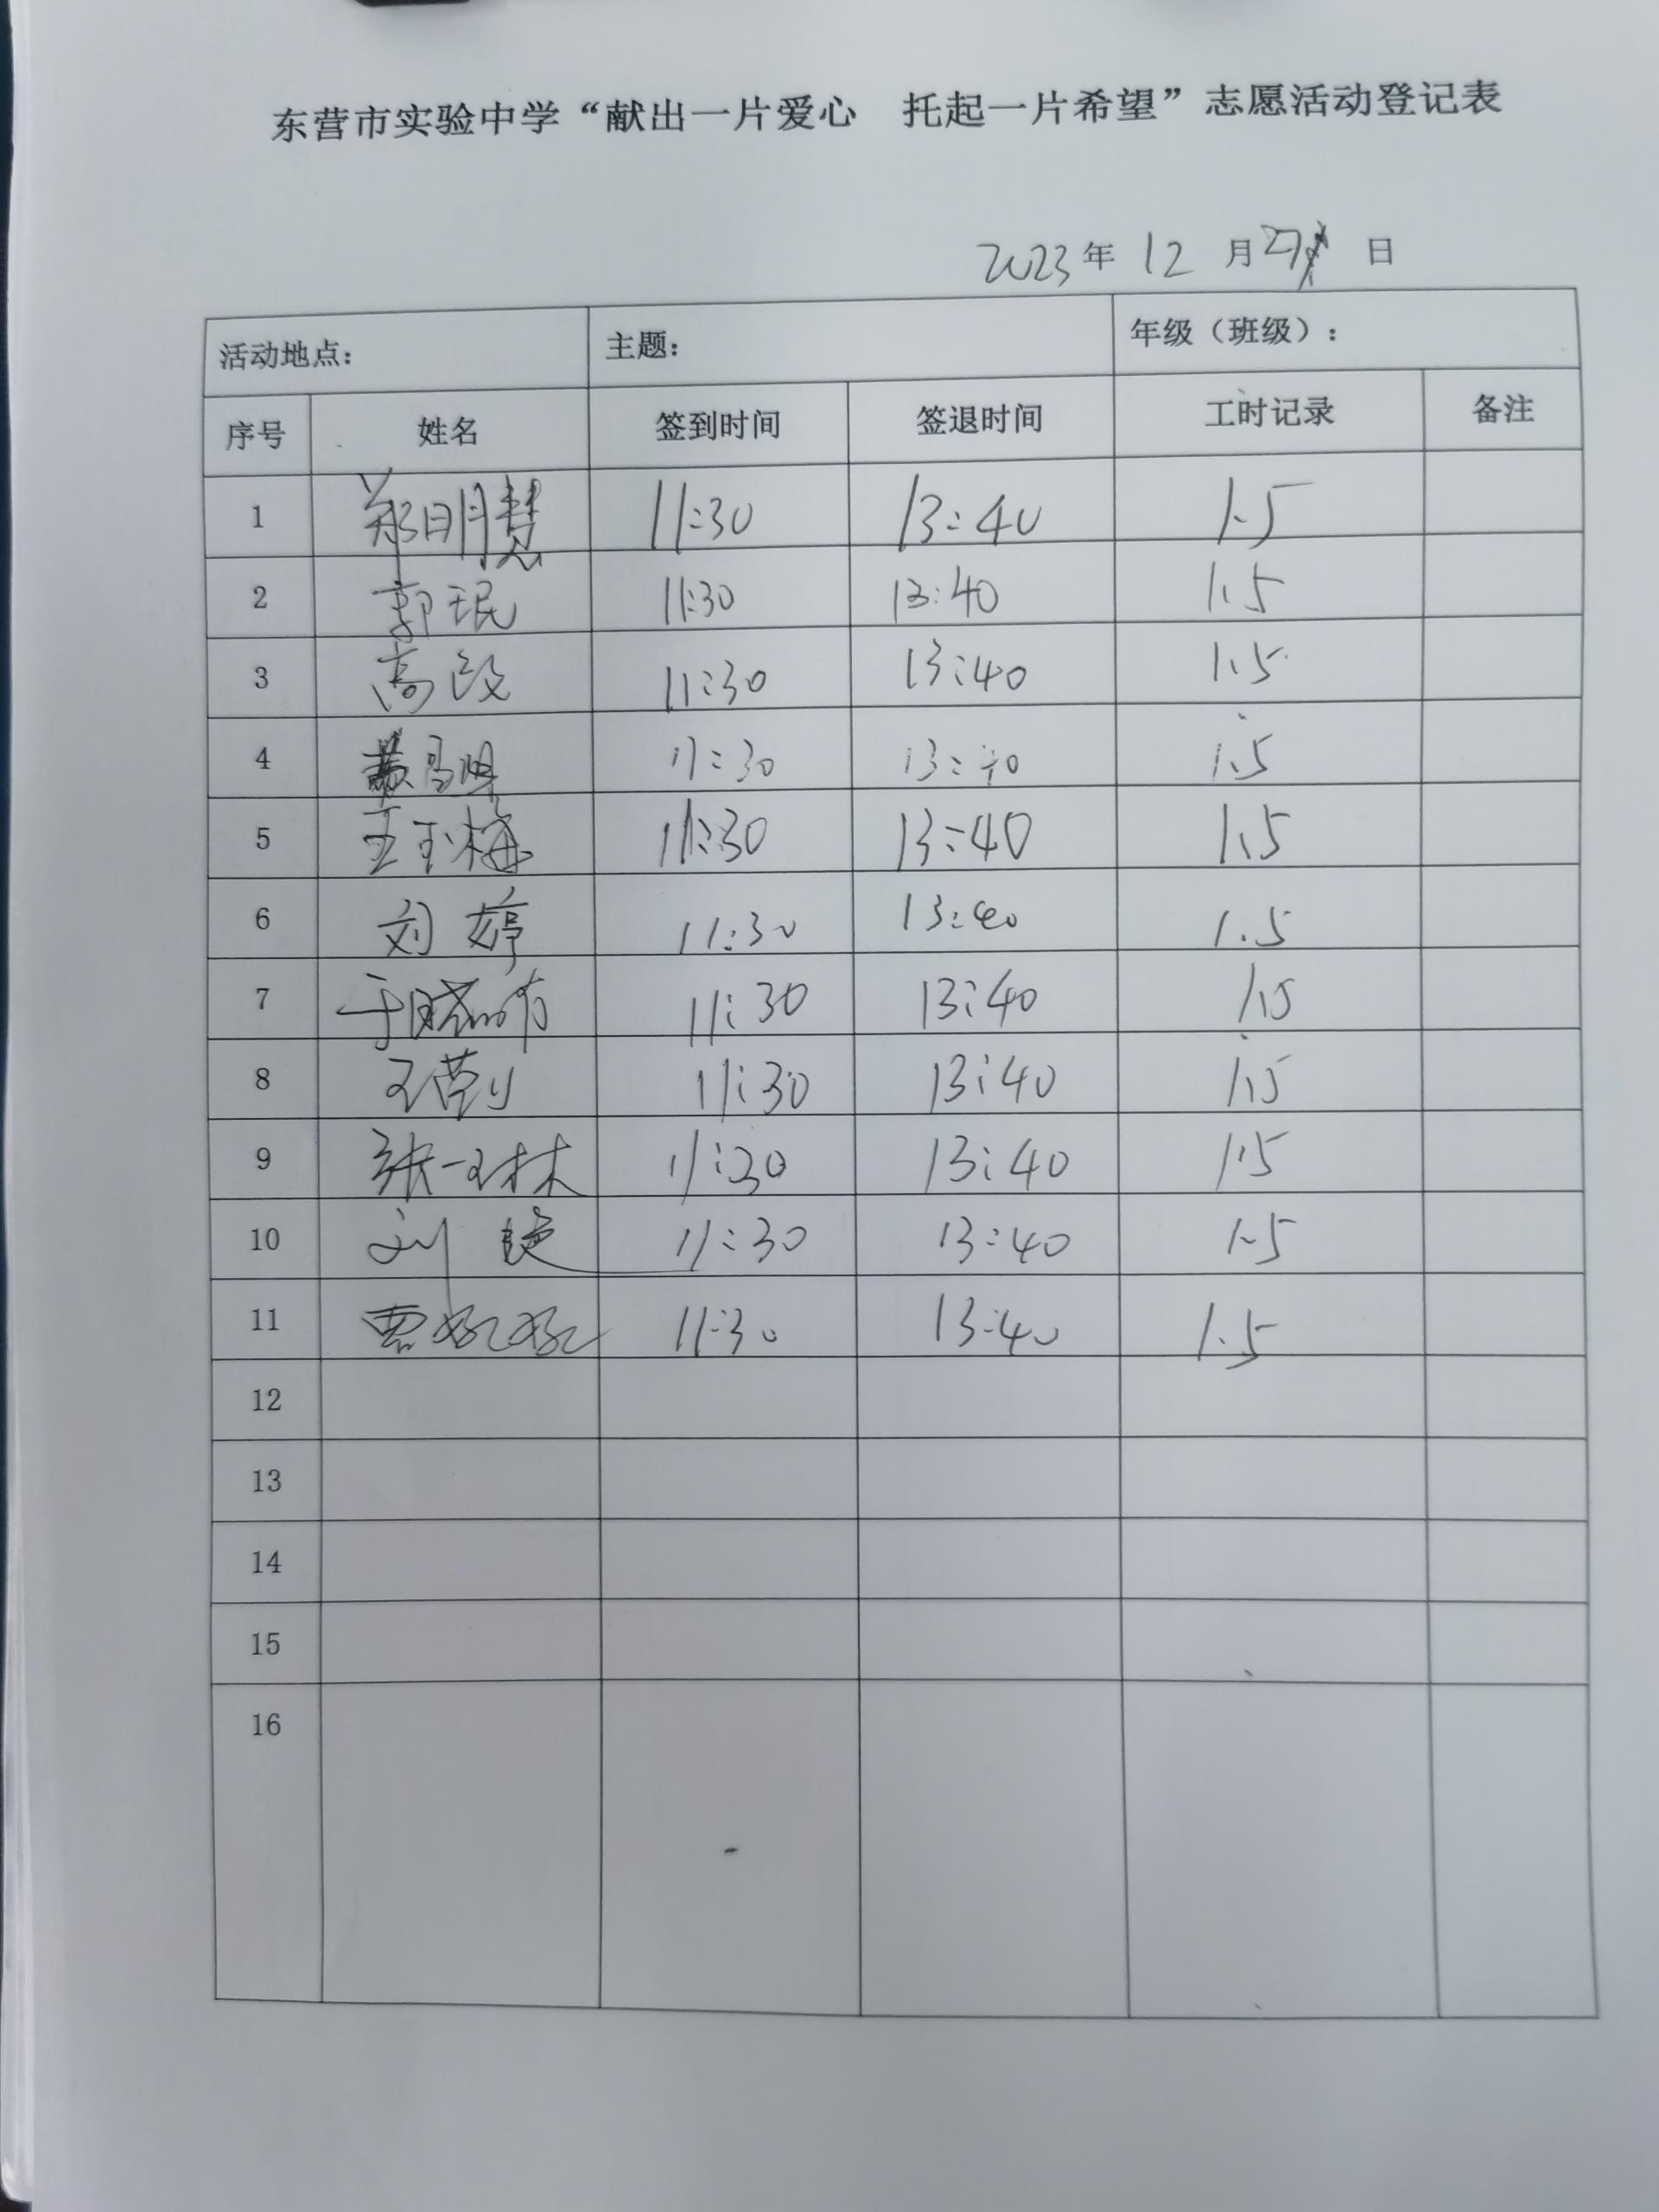 东营市实验中学“献出一片爱心 托起一片希望”志愿活动登记表
2023年 12 月27 日
活动地点: 主题: 年级（班级）:
序号 姓名 签到时间 签退时间 工时记录 备注
1 郑明慧 11:30 13:40 1.5
2 郭珉 11:30 13:40 1.5
3 高段 11:30 13:40 1.5
4 11:30 13:40 1.5
5 王玉梅 11:30 13:40 1.5
6 刘婷 11:30 13:40 1.5
7 于晓 11:30 13:40 1.5
8 王 11:30 13:40 1.5
9 张一琳 11:30 13:40 1.5
10 刘 11:30 13:40 1.5
11 11:30 13:40 1.5
12
13
14
15
16